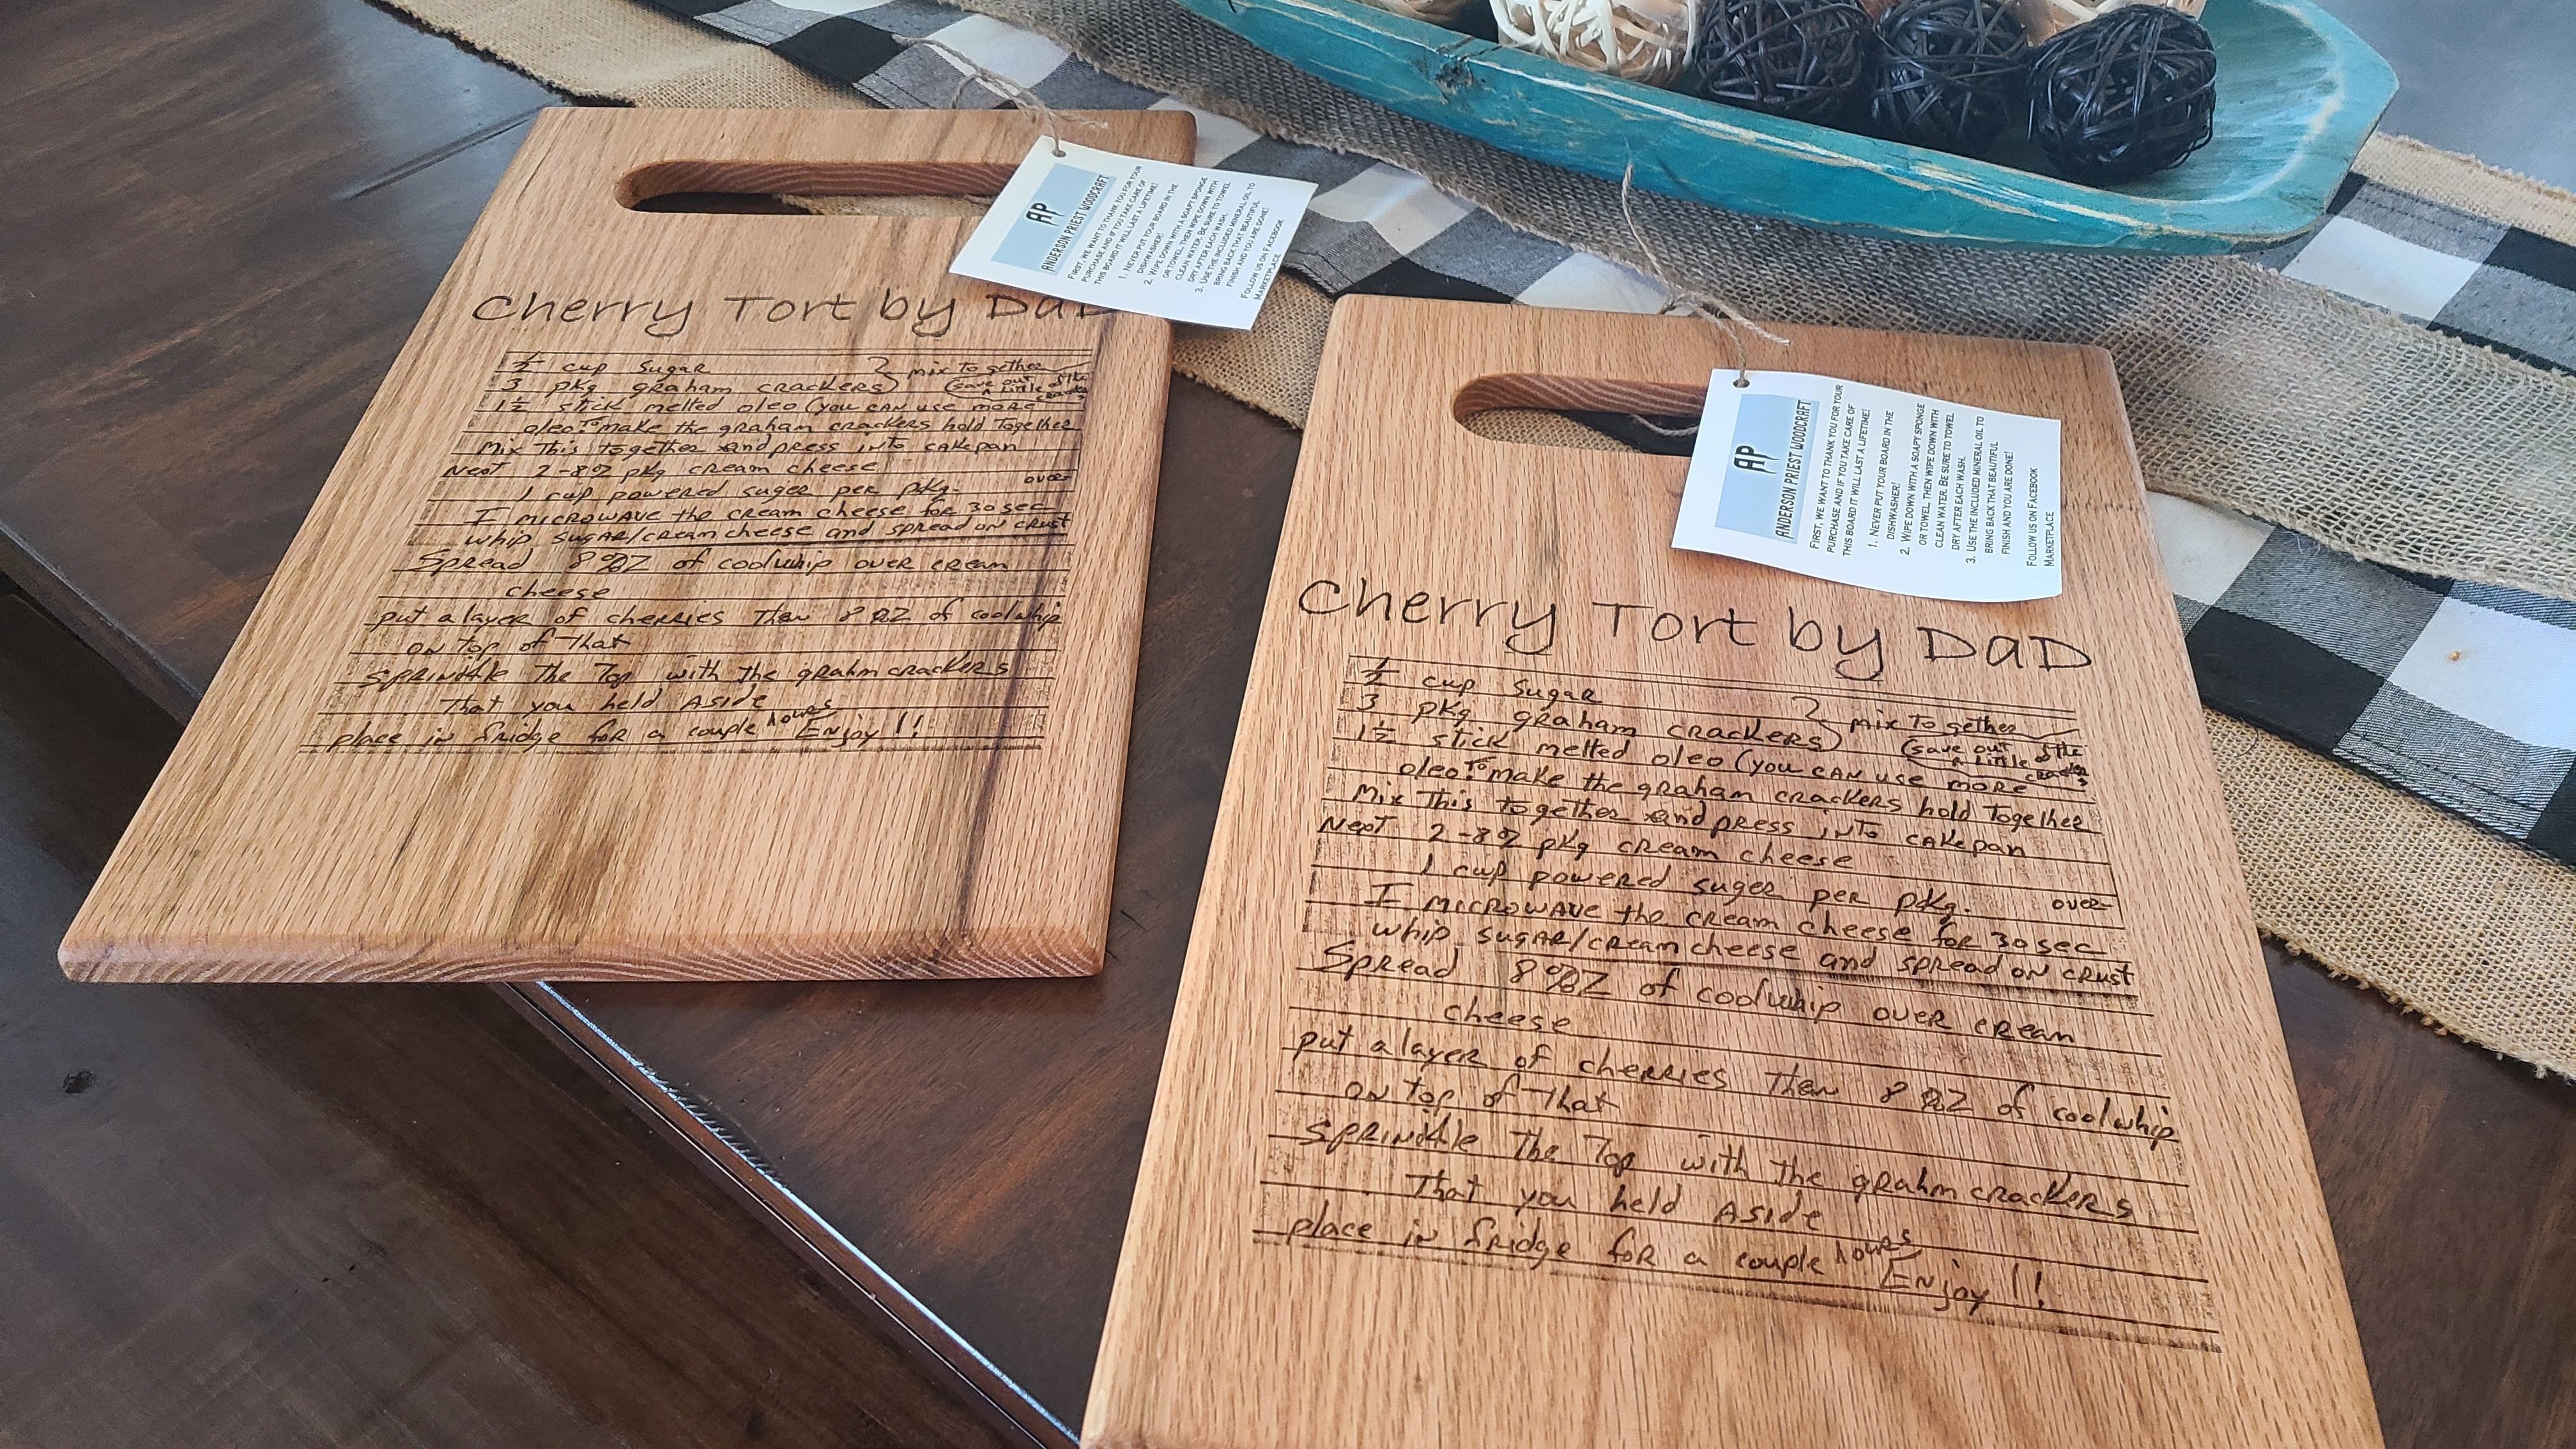 AP
ANDERSON PRIEST WOODCRAFT
FIRST, WE WANT TO THANK YOU FOR YOUR
PURCHASE AND IF YOU TAKE CARE OF
THIS BOARD IT WILL LAST A LIFETIME!
1. NEVER PUT YOUR BOARD IN THE
DISHWASHER!
2. WIPE DOWN WITH A SOAPY SPONGE
OR TOWEL, THEN WIPE DOWN WITH
CLEAN WATER. BE SURE TO TOWEL
DRY AFTER EACH WASH.
3. USE THE INCLUDED MINERAL OIL TO
BRING BACK THAT BEAUTIFUL
FINISH AND YOU ARE DONE!
FOLLOW US ON FACEBOOK
MARKETPLACE
Cherry Tort by DaD
1/2 cup Sugar mix together
3 pkg graham crackers) (save out a little of the crackers
1 1/2 stick melted oleo (you can use more
oleo to make the graham crackers hold together
Mix This together and press into cakepan
Next 2-8oz pkg cream cheese
1 cup powered suger per pkg. over
I microwave the cream cheese for 30 sec
whip sugar/cream cheese and spread on crust
Spread 8 OZ of coolwhip over cream
cheese
put a layer of cherries Then 8 OZ of coolwhip
on top of That
Sprinkle The Top with the grahm crackers
That you held Aside
place in fridge for a couple hours Enjoy!!
AP
ANDERSON PRIEST WOODCRAFT
FIRST, WE WANT TO THANK YOU FOR YOUR
PURCHASE AND IF YOU TAKE CARE OF
THIS BOARD IT WILL LAST A LIFETIME!
1. NEVER PUT YOUR BOARD IN THE
DISHWASHER!
2. WIPE DOWN WITH A SOAPY SPONGE
OR TOWEL, THEN WIPE DOWN WITH
CLEAN WATER. BE SURE TO TOWEL
DRY AFTER EACH WASH.
3. USE THE INCLUDED MINERAL OIL TO
BRING BACK THAT BEAUTIFUL
FINISH AND YOU ARE DONE!
FOLLOW US ON FACEBOOK
MARKETPLACE
Cherry Tort by DaD
1/2 cup Sugar mix together
3 pkg graham crackers) (save out a little of the crackers
1 1/2 stick melted oleo (you can use more
oleo to make the graham crackers hold together
Mix This together and press into cakepan
Next 2-8oz pkg cream cheese
1 cup powered suger per pkg. over
I microwave the cream cheese for 30 sec
whip sugar/cream cheese and spread on crust
Spread 8 OZ of coolwhip over cream
cheese
put a layer of cherries Then 8 OZ of coolwhip
on top of That
Sprinkle The Top with the grahm crackers
That you held Aside
place in fridge for a couple hours Enjoy!!